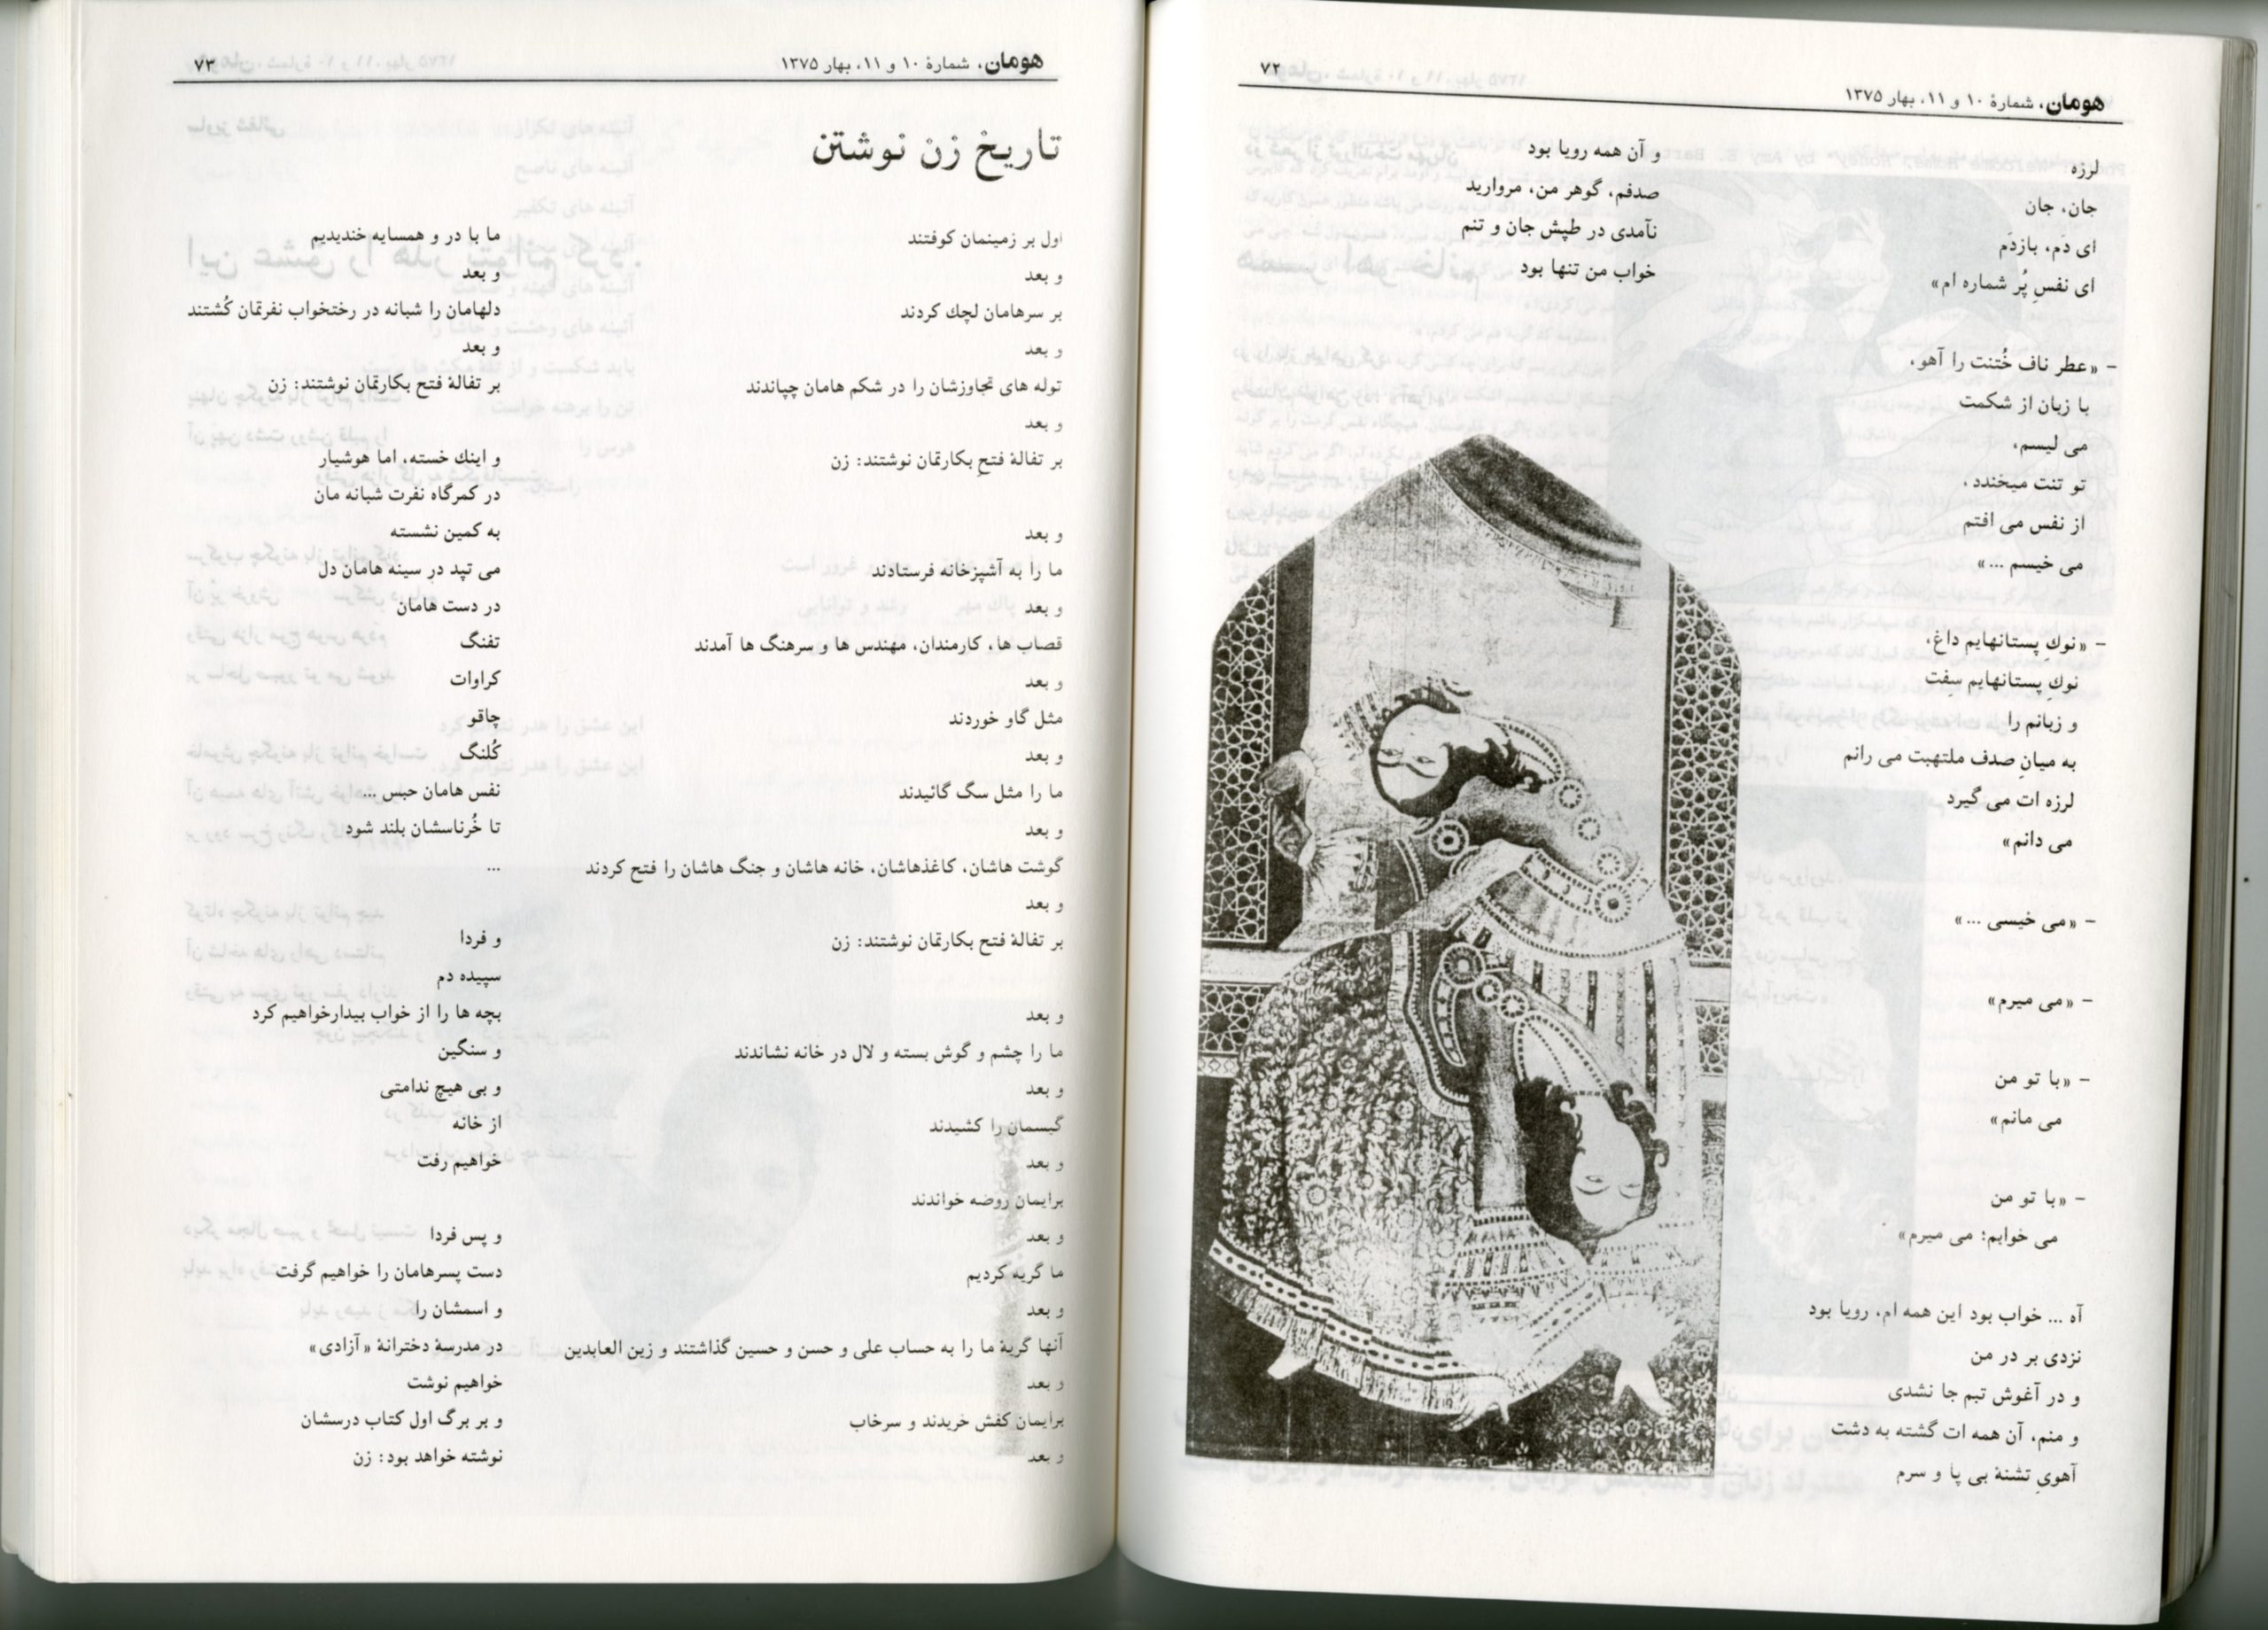 هومان، شمارهٔ ۱۰ و ۱۱، بهار ۱۳۷۵
۷۲
لرزه
جان، جان
ای دَم، بازدَم
ای نفسِ پُر شماره ام»
- «عطر ناف خُتنت را آهو،
با زبان از شکمت
می لیسم،
تو تنت میخندد،
از نفس می افتم
می خیسم ...»
- «نوكِ پستانهایم داغ،
نوكِ پستانهایم سِفت
و زبانم را
به میانِ صدف ملتهبت می رانم
لرزه ات می گیرد
می دانم»
- «می خیسی ...»
- «می میرم»
- «با تو من
می مانم»
- «با تو من
می خوابم؛ می میرم»
آه ... خواب بود این همه ام، رویا بود
نزدی بر در من
و در آغوش تبم جا نشدی
و منم، آن همه ات گشته به دشت
آهویِ تشنهٔ بی پا و سرم
و آن همه رویا بود
صدفم، گوهر من، مروارید
نآمدی در طپش جان و تنم
خواب من تنها بود
هومان، شمارهٔ ۱۰ و ۱۱، بهار ۱۳۷۵
۷۳
تاریخ زن نوشتن
اول بر زمینمان کوفتند
و بعد
بر سرهامان لچك کردند
و بعد
توله های تجاوزشان را در شکم هامان چپاندند
و بعد
بر تفالهٔ فتحِ بکارتمان نوشتند: زن
و بعد
ما را به آشپزخانه فرستادند
و بعد
قصاب ها، کارمندان، مهندس ها و سرهنگ ها آمدند
و بعد
مثل گاو خوردند
و بعد
ما را مثل سگ گائیدند
و بعد
گوشت هاشان، کاغذهاشان، خانه هاشان و جنگ هاشان را فتح کردند
و بعد
بر تفالهٔ فتح بکارتمان نوشتند: زن
و بعد
ما را چشم و گوش بسته و لال در خانه نشاندند
و بعد
گیسمان را کشیدند
و بعد
برایمان روضه خواندند
و بعد
ما گریه کردیم
و بعد
آنها گریهٔ ما را به حساب علی و حسن و حسین گذاشتند و زین العابدین
و بعد
برایمان کفش خریدند و سرخاب
و بعد
ما با در و همسایه خندیدیم
و بعد
دلهامان را شبانه در رختخواب نفرتمان کُشتند
و بعد
بر تفالهٔ فتح بکارتمان نوشتند: زن
و اینك خسته، اما هوشیار
در کمرگاه نفرت شبانه مان
به کمین نشسته
می تپد در سینه هامان دل
در دست هامان
تفنگ
کراوات
چاقو
کُلنگ
نفس هامان حبس ...
تا خُرناسشان بلند شود
...
و فردا
سپیده دم
بچه ها را از خواب بیدارخواهیم کرد
و سنگین
و بی هیچ ندامتی
از خانه
خواهیم رفت
و پس فردا
دست پسرهامان را خواهیم گرفت
و اسمشان را
در مدرسهٔ دخترانهٔ «آزادی»
خواهیم نوشت
و بر برگ اول کتاب درسشان
نوشته خواهد بود: زن